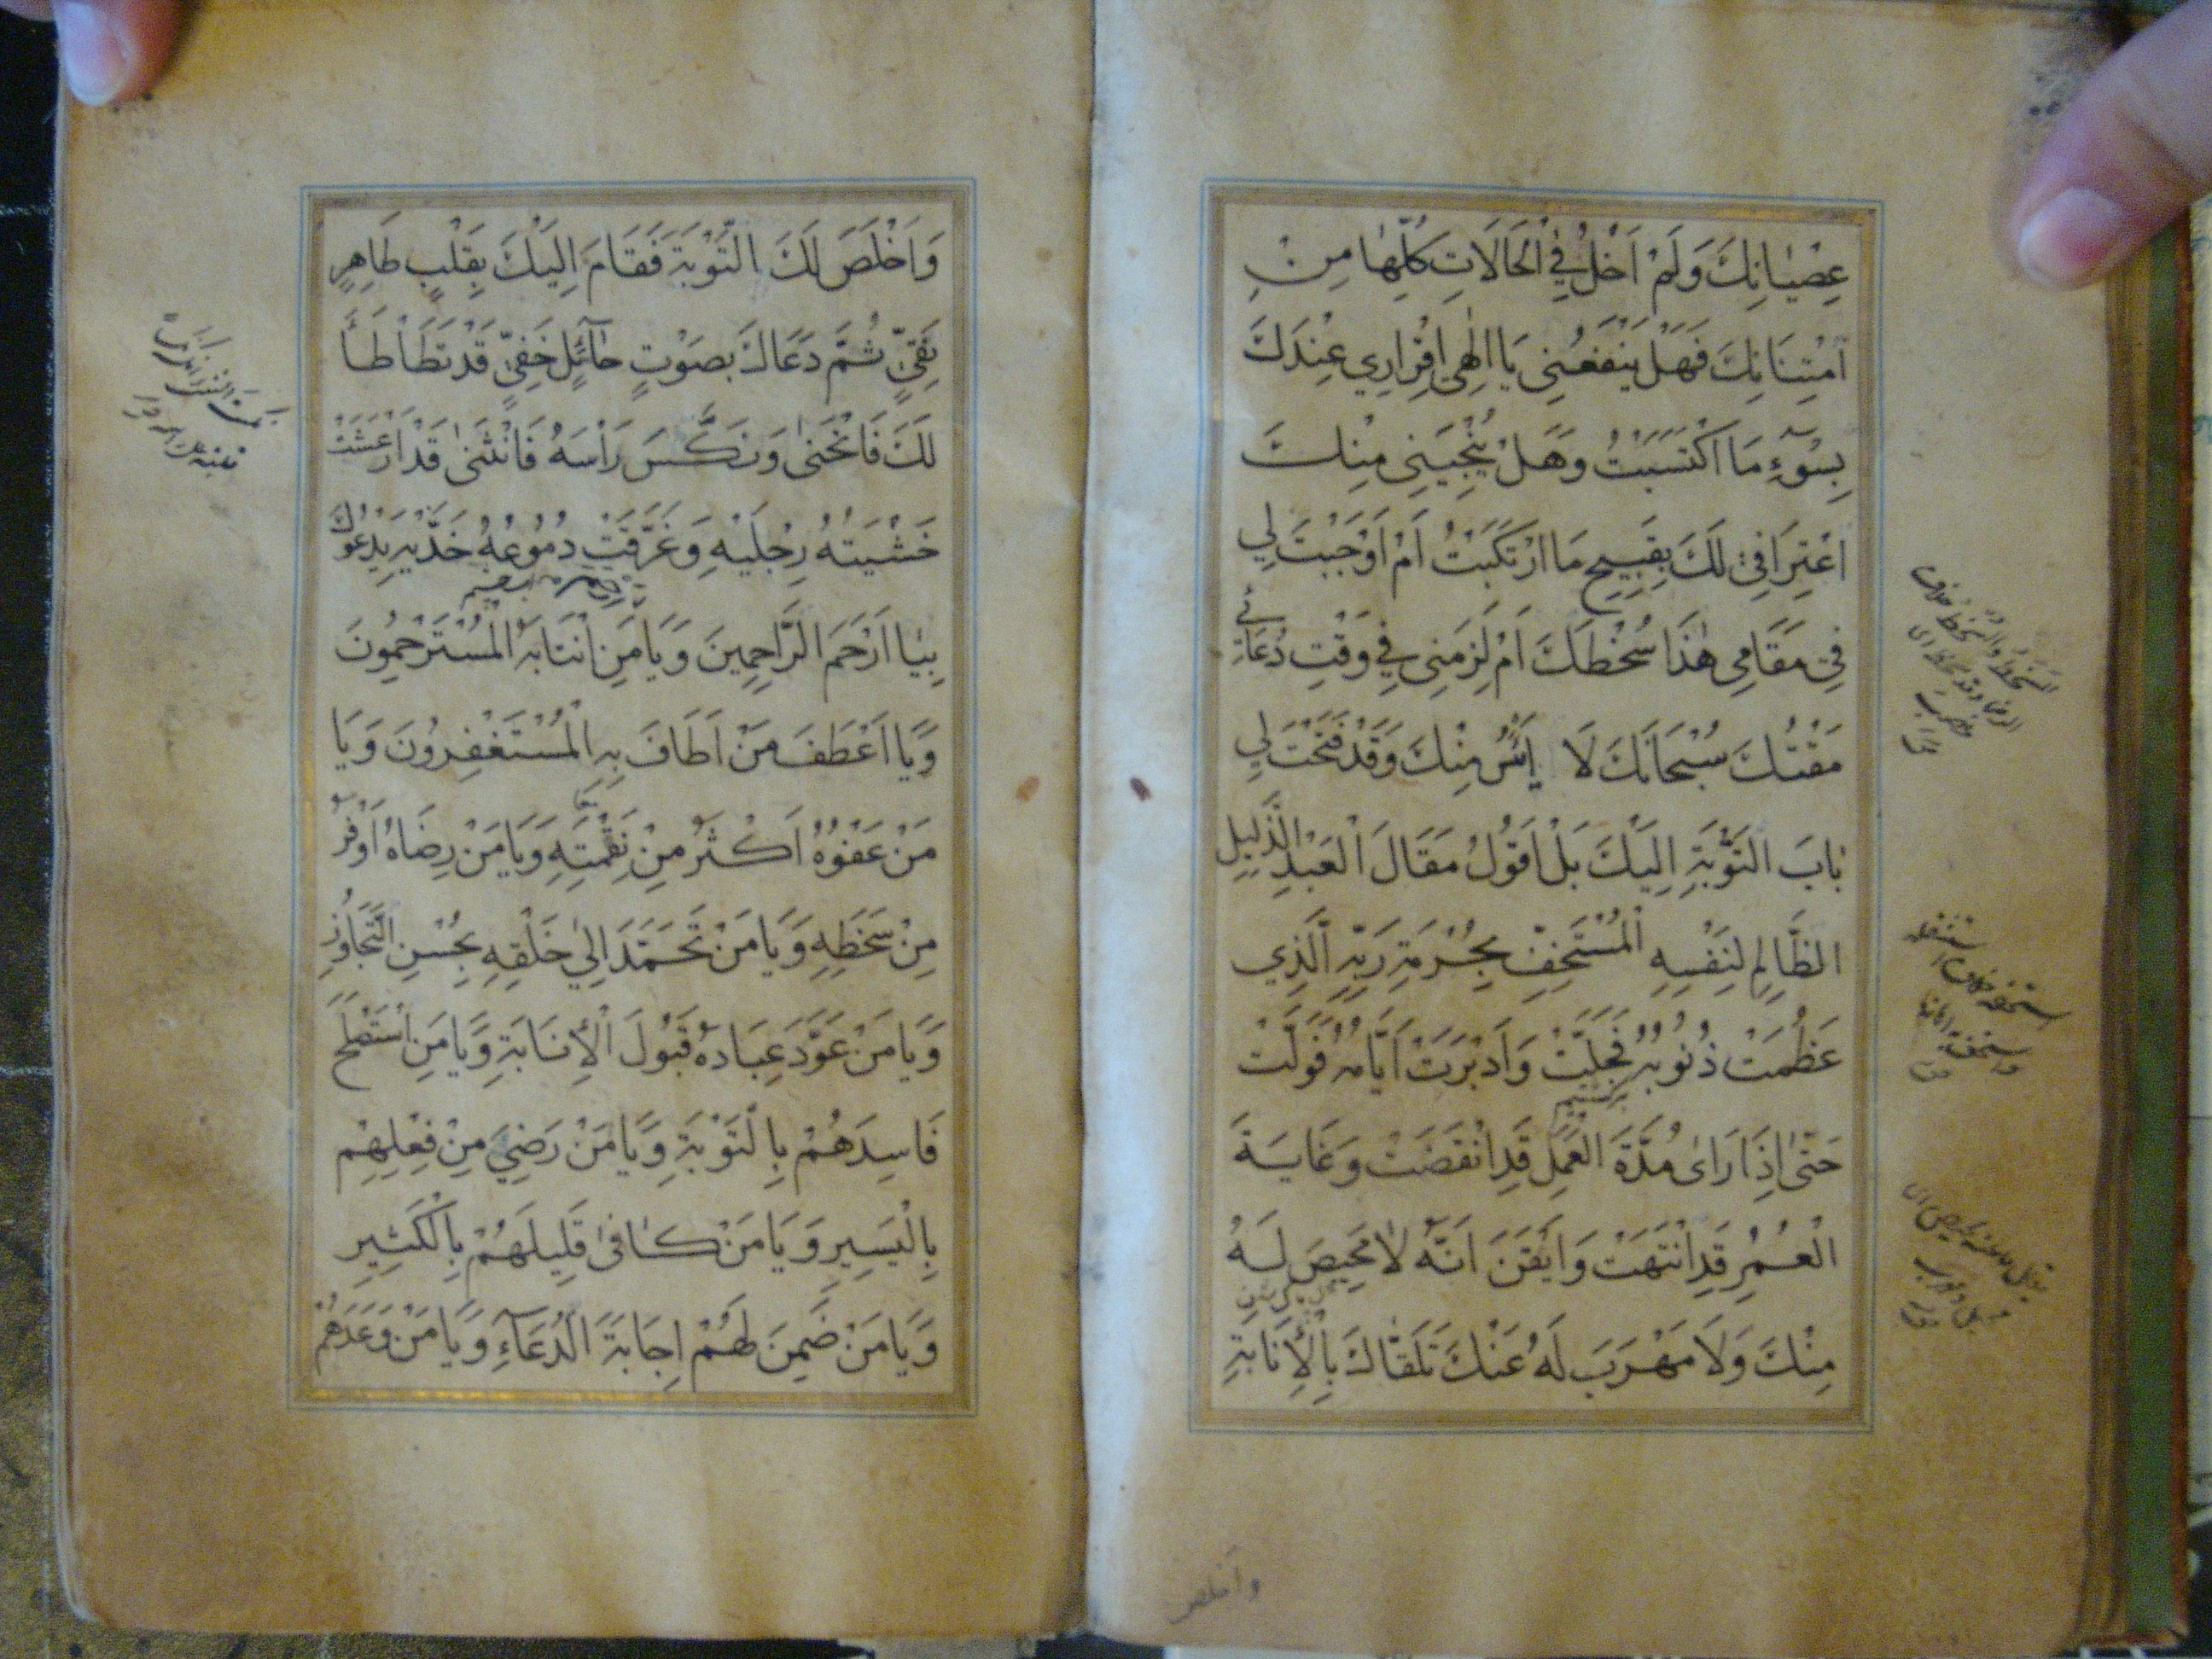 عِصْيَانِكَ وَلَمْ اَخْلُ فِي الْحَالَاتِ كُلِّهَا مِنِ
امْتِنَانِكَ فَهَلْ يَنْفَعُنِي يَا اِلٰهِي اِقْرَارِي عِنْدَكَ
بِسُوۤءِ مَا اكْتَسَبْتُ وَهَلْ يُنْجِيَنِي مِنْكَ
اعْتِرَافِي لَكَ بِقَبِيحِ مَا ارْتَكَبْتُ اَمْ اَوْجَبْتَ لِي
فِي مَقَامِي هٰذَا سُخْطَكَ اَمْ لَزِمَنِي فِي وَقْتِ دُعَائِي
مَقْتُكَ سُبْحَانَكَ لَا اَيْئَسُ مِنْكَ وَقَدْ فَتَحْتَ لِي
بَابَ التَّوْبَةِ اِلَيْكَ بَلْ اَقُولُ مَقَالَ الْعَبْدِ الذَّلِيلِ
الظَّالِمِ لِنَفْسِهِ الْمُسْتَخِفِّ بِحُرْمَةِ رَبِّهِ الَّذِي
عَظُمَتْ ذُنُوبُهُ فَجَلَّتْ وَاَدْبَرَتْ اَيَّامُهُ فَوَلَّتْ
حَتّٰى اِذَا رَاٰى مُدَّةَ الْعَمَلِ قَدِ انْقَضَتْ وَغَايَةَ
الْعُمُرِ قَدِ انْتَهَتْ وَاَيْقَنَ اَنَّهُ لَا مَحِيصَ لَهُ
مِنْكَ وَلَا مَهْرَبَ لَهُ عَنْكَ تَلَقَّاكَ بِالْاِنَابَةِ
واخلص
وَاَخْلَصَ لَكَ التَّوْبَةَ فَقَامَ اِلَيْكَ بِقَلْبٍ طَاهِرٍ
نَقِيٍّ ثُمَّ دَعَاكَ بِصَوْتٍ حَاۤئِلٍ خَفِيٍّ قَدْ تَطَأْطَأَ
لَكَ فَانْحَنٰى وَنَكَّسَ رَاْسَهُ فَانْثَنٰى قَدْ اَرْعَشَتْ
خَشْيَتُهُ رِجْلَيْهِ وَغَرَّقَتْ دُمُوعُهُ خَدَّيْهِ يَدْعُوكَ
بِيَا اَرْحَمَ الرَّاحِمِينَ وَيَا مَنِ انْتَابَهُ الْمُسْتَرْحِمُونَ
وَيَا اَعْطَفَ مَنْ اَطَافَ بِهِ الْمُسْتَغْفِرُونَ وَيَا
مَنْ عَفْوُهُ اَكْثَرُ مِنْ نِقْمَتِهِ وَيَا مَنْ رِضَاهُ اَوْفَرُ
مِنْ سَخَطِهِ وَيَا مَنْ تَحَمَّدَ اِلٰى خَلْقِهِ بِحُسْنِ التَّجَاوُزِ
وَيَا مَنْ عَوَّدَ عِبَادَهُ قَبُولَ الْاِنَابَةِ وَيَا مَنِ اسْتَصْلَحَ
فَاسِدَهُمْ بِالتَّوْبَةِ وَيَا مَنْ رَضِيَ مِنْ فِعْلِهِمْ
بِالْيَسِيرِ وَيَا مَنْ كَافٰى قَلِيلَهُمْ بِالْكَثِيرِ
وَيَا مَنْ ضَمِنَ لَهُمْ اِجَابَةَ الدُّعَاۤءِ وَيَا مَنْ وَعَدَهُمْ